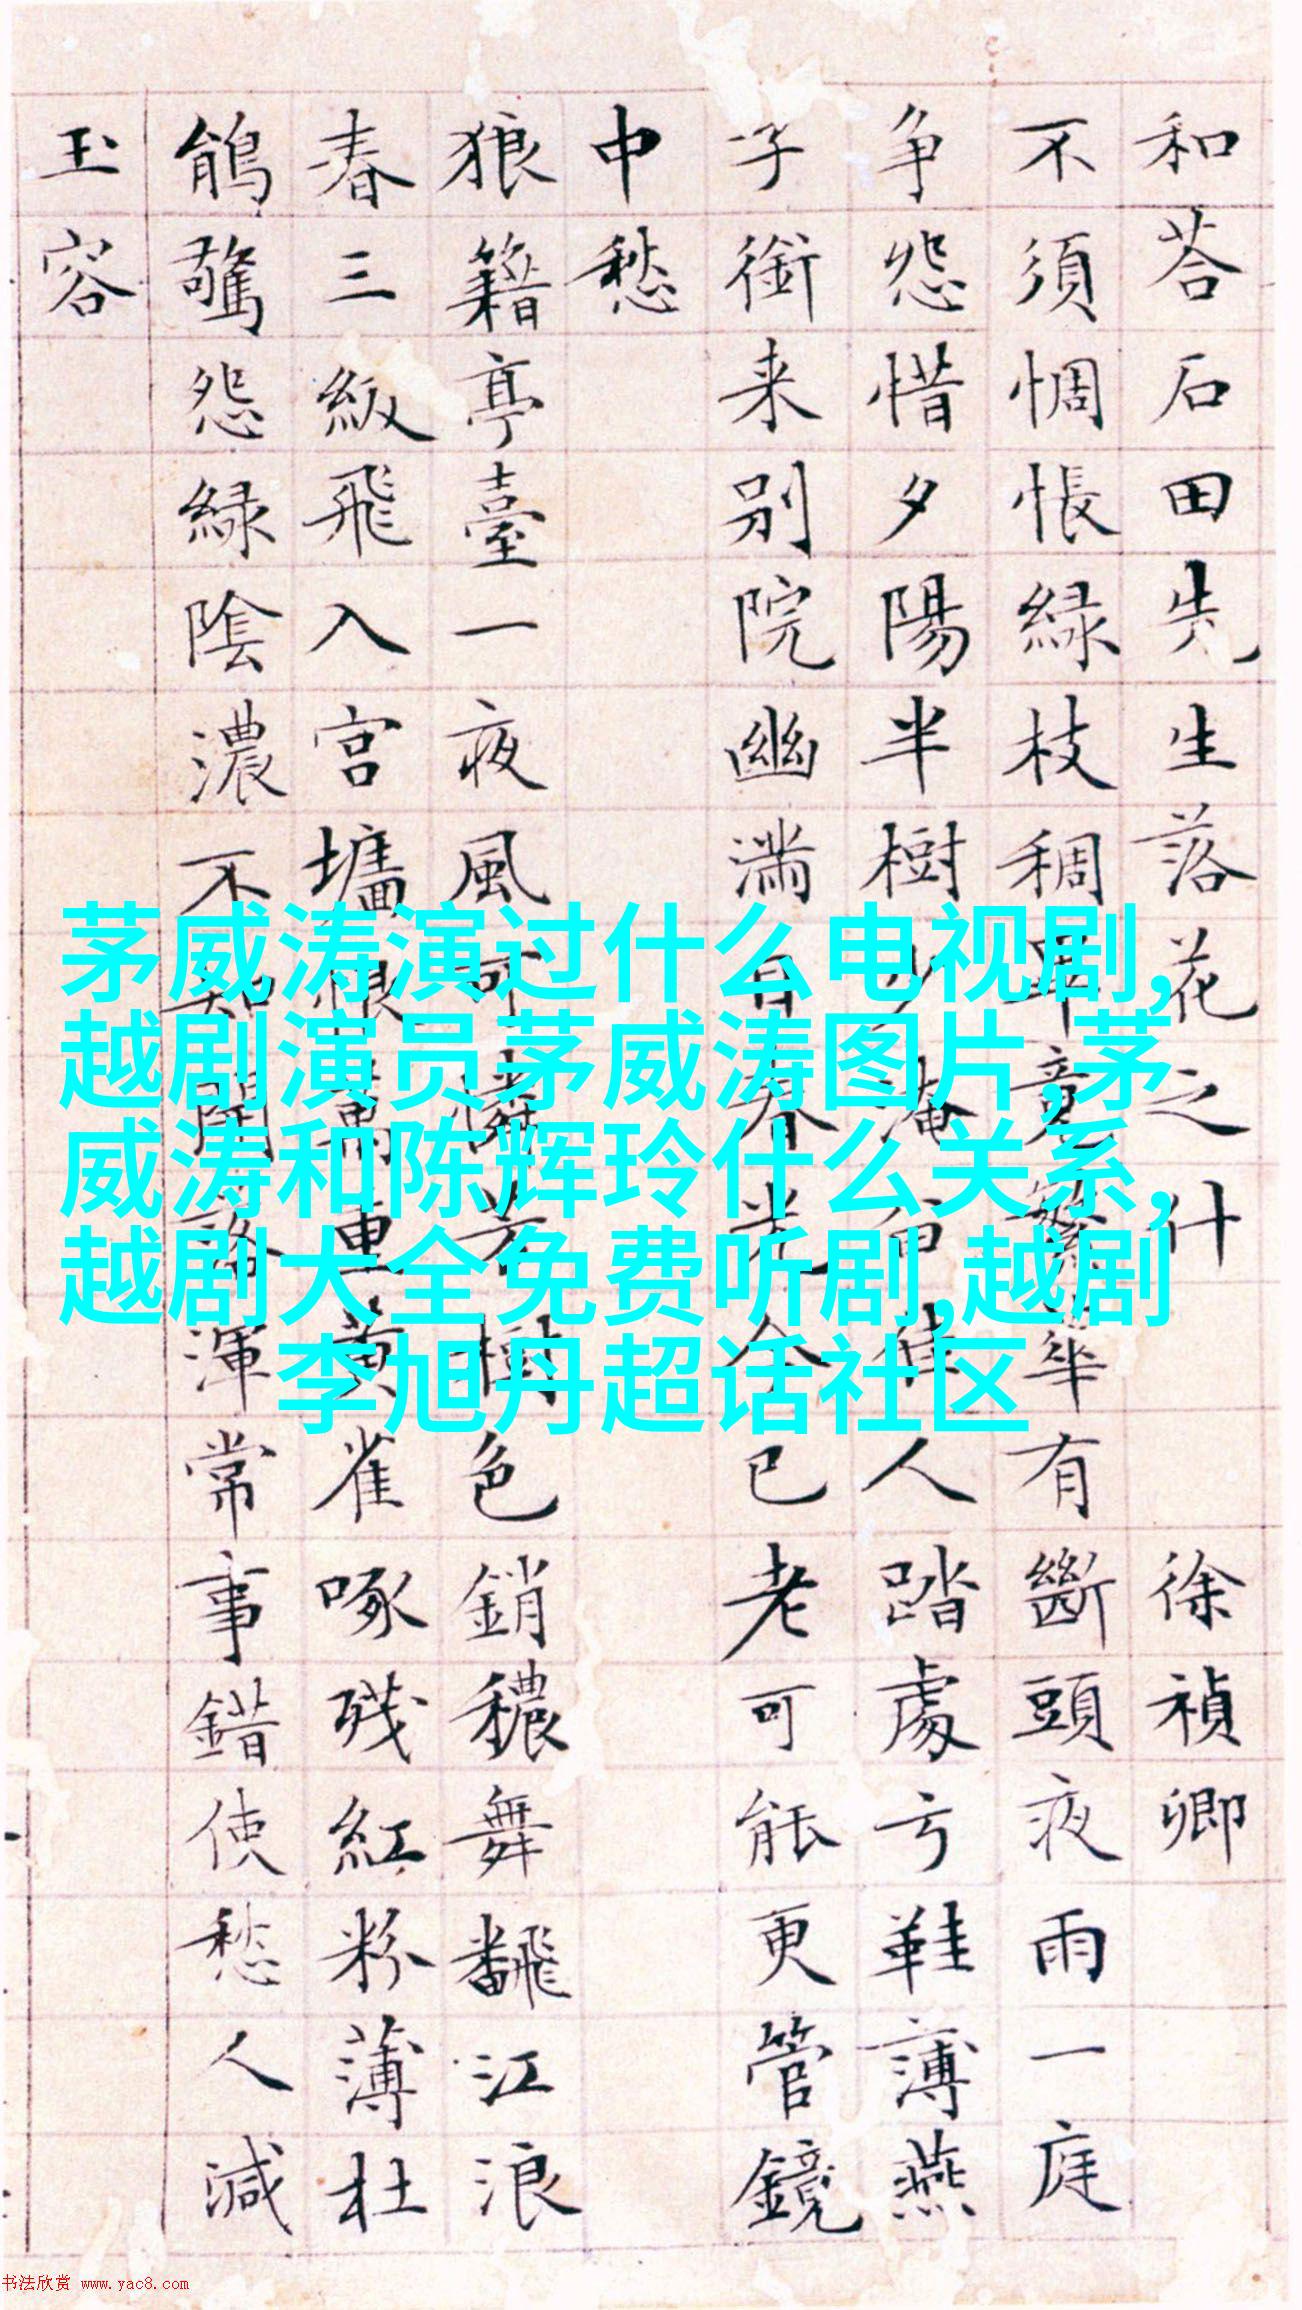 和荅石田先生落花之什 徐禎卿
不須惆悵緑枝稠畢竟繁華有斷頭夜雨一庭
争怨惜夕陽半樹少淹留佳人踏處弓鞋薄燕
子銜来别院幽满目春光今已老可能更管鏡
中愁
狼籍亭臺一夜風可憐芳樹色銷穠舞飜江浪
春三級飛入宫墻萬重黄雀啄殘紅粉薄杜
鵑驚怨緑陰濃不知開落渾常事錯使愁人減
玉容
茅威涛演过什么电视剧,
越剧演员茅威涛图片,茅
威涛和陈辉玲什么关系,
越剧大全免费听剧,越剧
李旭丹超话社区
书法欣赏 www.yac8.com